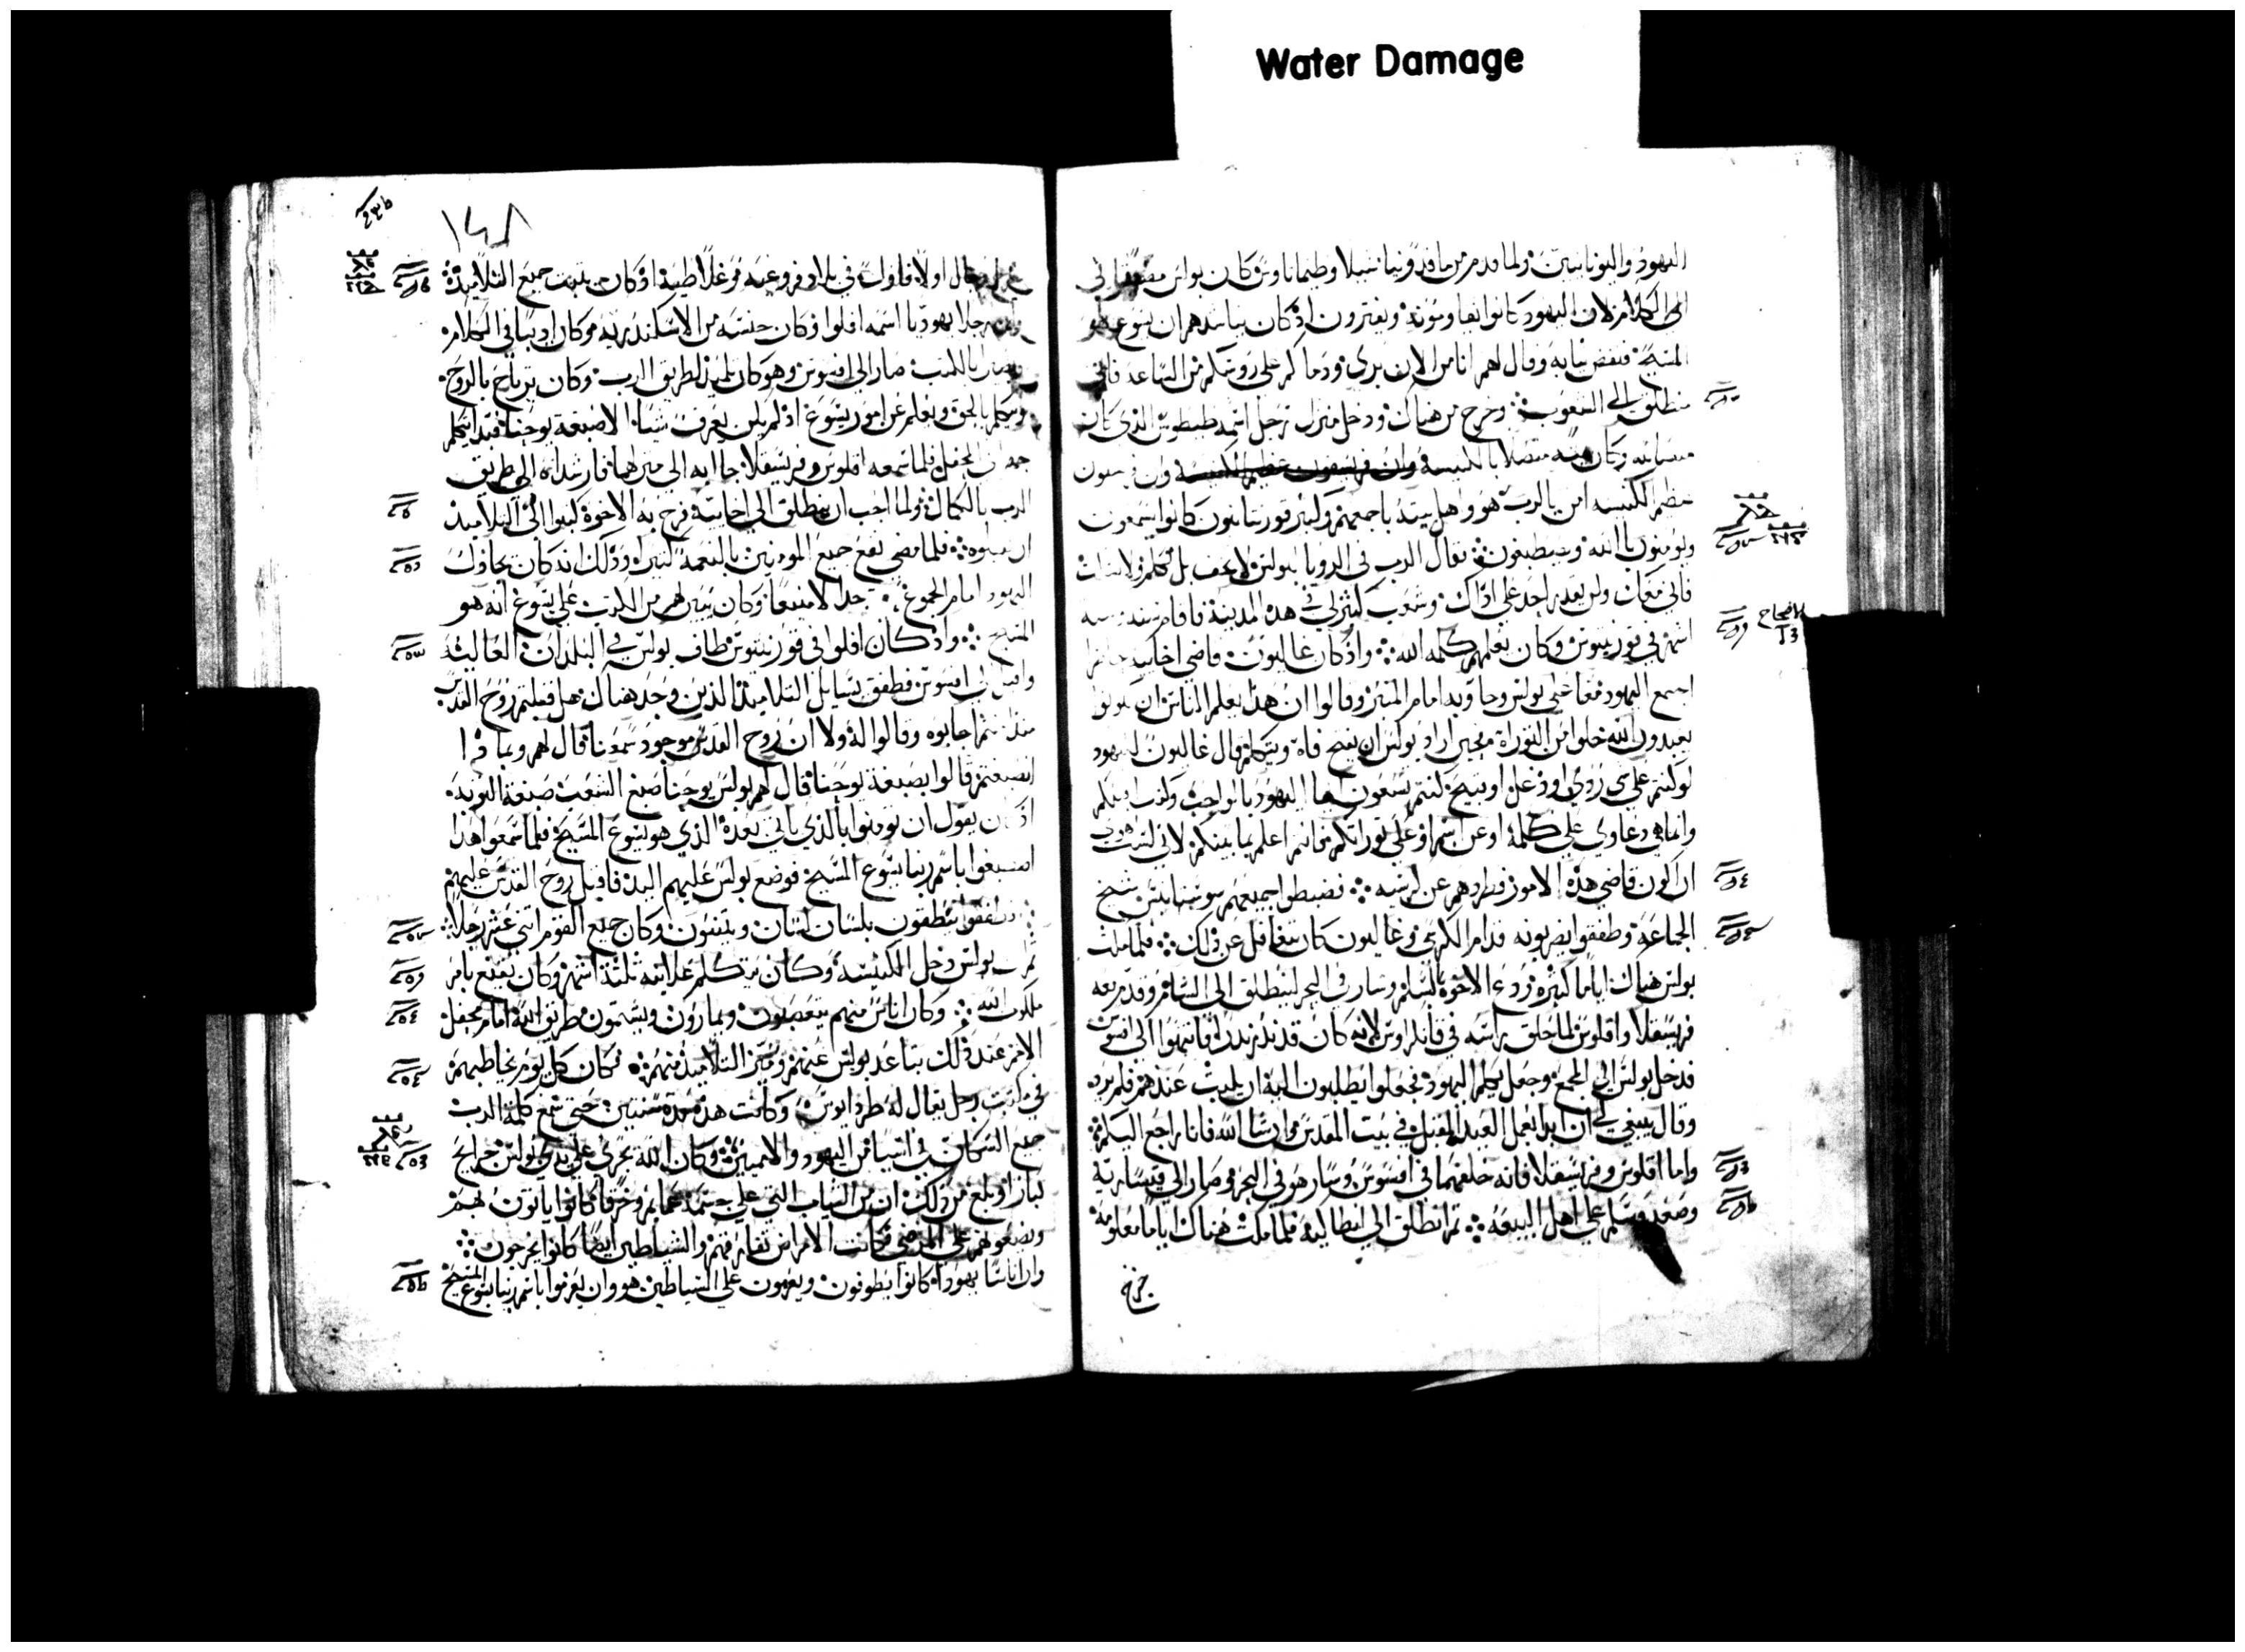 Water Damage
اليهود واليونانيين ولما قدم من ماقدونيا شيلا وطيماتاوس كان بولس
الى الكلام لان اليهود كانوا يقاومونه ويفترون اذ كان يناشدهم ان يسوع هو
المسيح فنفض ثيابه وقال لهم انا من الان بري ودماكم على روسكم من الساعه فاني
منطلق الى الشعوب وخرج من هناك ودخل منزل رجل اسمه طيطوس الذي كان
وكان بيته متصلا بالكنيسة
الكنيسه امن بالرب هو واهل بيته باجمعهم وكثير قورنثانيون كانوا يسمعون
ويومنون بالله ويصطبغون فقال الرب في الرويا لبولس لا تخف بل تكلم ولا تسكت
فاني معك ولن يقدر احد على اذاك وشعب كثير لي في هذه المدينة فاقام سنه وسته
اشهر في قورنيتوس وكان يعلمهم كلمه الله واذ كان غاليون قاضي اخاييه
اجتمع اليهود معا على بولس وجاوا به امام المنبر وقالوا ان هذا يعلم الناس ان يكونوا
يعبدون الله خلوا من التوراة فحين اراد بولس ان يفتح فاه ويتكلم قال غاليون لليهود
لو كنتم على شي ردي او دغل او قبيح كنتم تسعون ايها اليهود بالواجب
وانما هي دعاوي على كلمة او عن اسم او على توراتكم فانتم اعلم بما بينكم لاني لست اهوى
ان اكون قاضي هذه الامور فطردهم عن كرسيه فضبطوا جميعهم سوسثانيس شيخ
الجماعة وطفقوا يضربونه قدام الكرسي وغاليون كان يتغافل عن ذلك فلما مكث
بولس هناك اياما كثيرة ودع الاخوة بالسلم وسار في البحر لينطلق الى الشام وقدم معه
فريسقلا واقلوس لما حلق راسه في قانكراوس لانه كان قد نذر نذرا فانتهوا الى افسوس
فدخل بولس الى المجمع وجعل يكلم اليهود فجعلوا يطلبون اليه ان يلبث عندهم فلم يرد
وقال ينبغي لي ان ابدا اعمل العيد المقبل في بيت المقدس وان شا الله فانا راجع اليكم
واما اقلوس وفريسقلا فانه خلفهما في افسوس وسار هو في البحر وصار الى قيساريه
وصعد وسلم على اهل البيعه ثم انطلق الى انطاكية فلما مكث هناك اياما معلومه
خرج
١٤٨
اولا فاولا في بلاد فروغيه وغلاطيه اذ كان يثبت جميع التلاميذ
رجلا يهوديا اسمه افلوا وكان جنسه من الاسكندريه وكان اديبا في الكلام
بالكتب صار الى افسوس وهو كان تلميذ لطريق الرب وكان يرتاح بالروح
ويتكلم بالحق ويعلم عن امور يسوع اذ لم يكن يعرف شيئا الا صبغة يوحنا فبدا يتكلم
المحفل فلما سمعه اقلوس وفريسقلا جاا به الى منزلهما فارشداه الى طريق
الرب بالكمال ولما احب ان ينطلق الى اخاييه فرح به الاخوة وكتبوا الى التلاميذ
ان يقبلوه فلما مضى نفع جميع المومنين بالنعمة كثيرا وذلك انه كان يجادل
اليهود امام الجموع جدلا منيعا وكان يبين لهم من الكتب على يسوع انه هو
المسيح واذ كان افلوا في قورنيتوس طاف بولس في البلدان العالية
واقبل الى افسوس فطفق يسايل التلاميذ الذين وجد هناك هل قبلتم روح القدس
اجابوه وقالوا له ولا ان روح القدس موجود سمعنا قال لهم وبماذا
انصبغتم قالوا بصبغة يوحنا قال لهم بولس يوحنا صبغ الشعب صبغة التوبه
اذ كان يقول ان يومنوا بالذي ياتي بعده الذي هو يسوع المسيح فلما سمعوا هذا
اصطبغوا باسم ربنا يسوع المسيح فوضع بولس عليهم اليد فاقبل روح القدس عليهم
وطفقوا ينطقون بلسان لسان ويتنبون وكان جميع القوم اثني عشر رجلا
بولس دخل الكنيسه وكان يتكلم علانيه ثلثة اشهر وكان يقنع بامر
ملكوت الله وكان اناس منهم يتعصبون ويمارون ويشتمون طريق الله امام محفل
الامم عند ذلك تباعد بولس عنهم وميز التلاميذ منهم فكان كل يوم يخاطبهم
في مكتب رجل يقال له طرانوس وكانت هذه مدة سنتين حتى سمع كلمة الرب
جميع السكان في اسيا من اليهود والامميين وكان الله يجري على يدي بولس جرايح
كبار وبلغ من ذلك ان من الثياب التي على جسمه عمايم وخرقا كانوا ياتون بهم
ويضعونهم على المرضى فكانت الامراض تفارقهم والشياطين ايضا كانوا يخرجون
وان اناسا يهودا كانوا يطوفون ويعزمون على الشياطين هووا ان يعزموا باسم ربنا يسوع المسيح